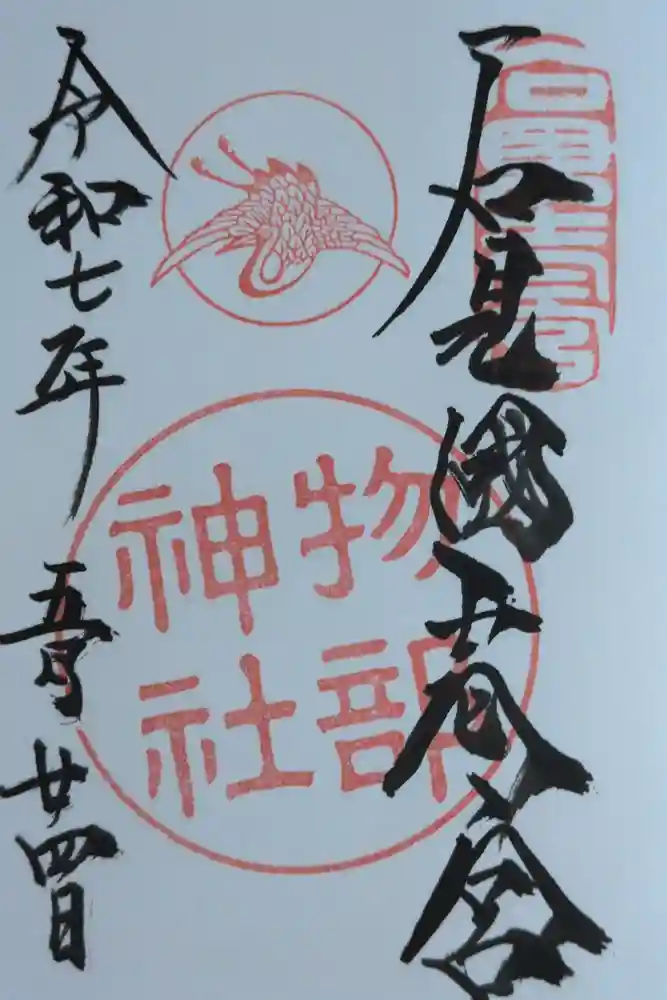 石見國一宮
石見國一宮
物部
神社
令和七年
五月
廿四日